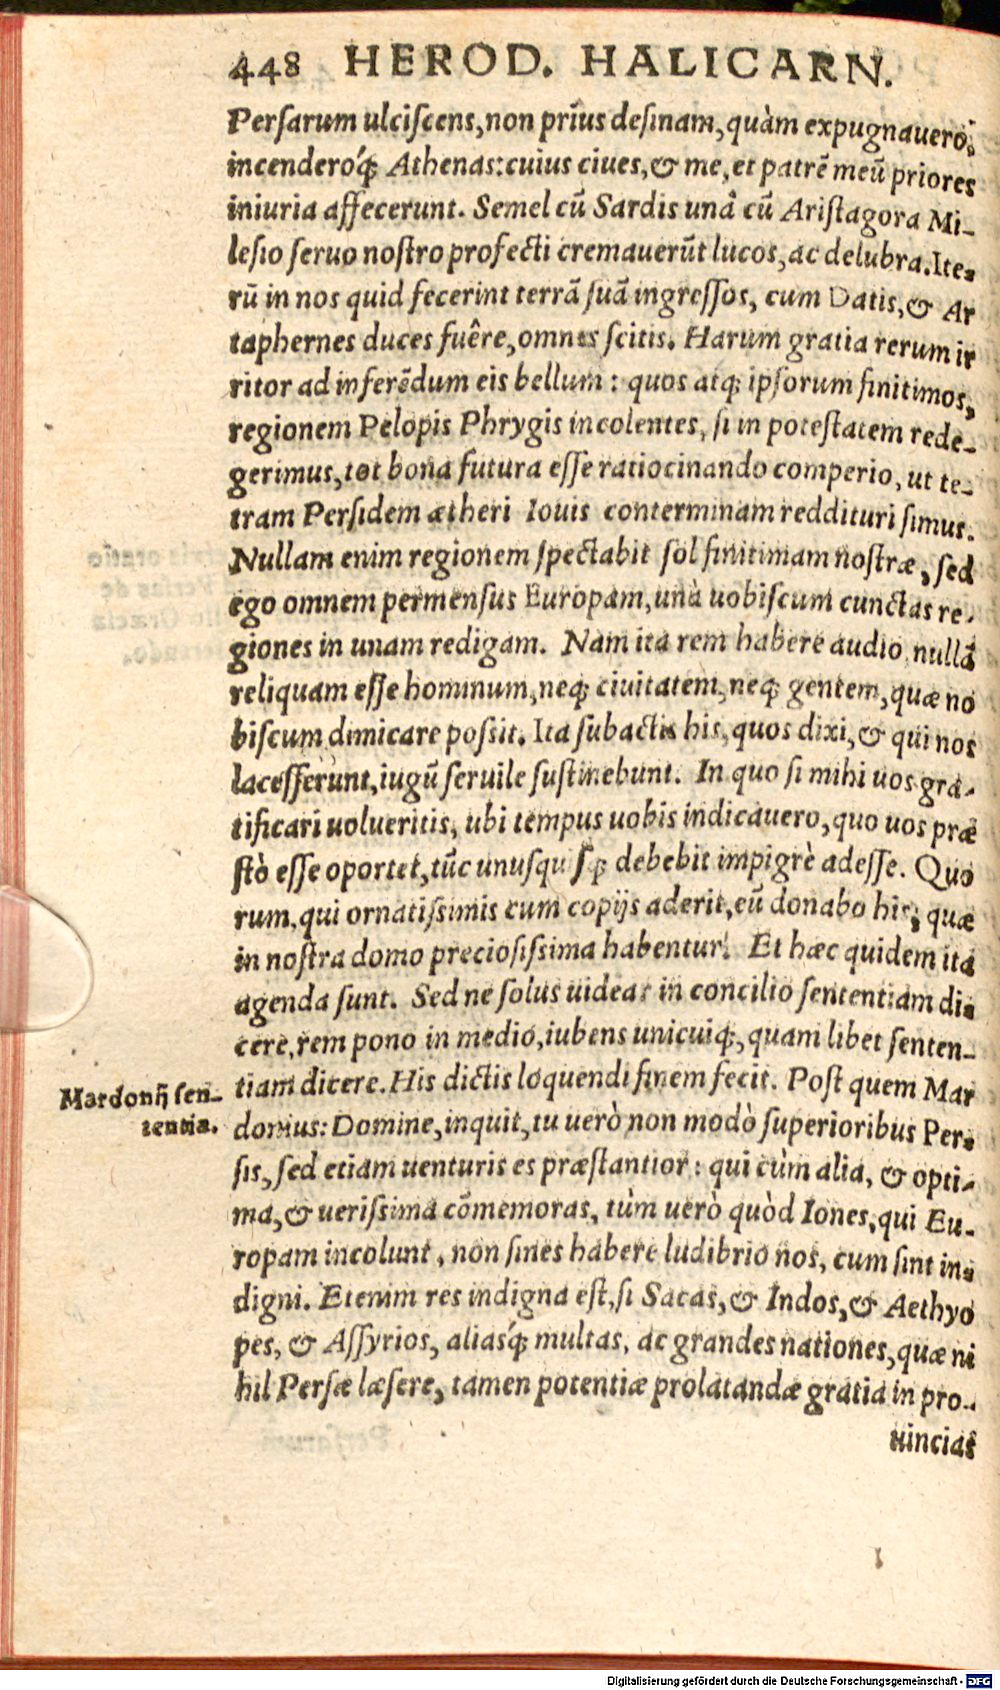 448 HEROD. HALICARN.
Perſarum ulciſcens, non priús deſinam, quàm expugnauero,
incenderóq́; Athenas: cuius ciues, & me, et patrē meū priores
iniuria affecerunt. Semel cū Sardis unâ cū Ariſtagora Mi-
leſio ſeruo noſtro profecti cremauerūt lucos, ac delubra. Ite-
rū in nos quid fecerint terrā ſuā ingreſſos, cum Datis, & Ar
taphernes duces fuêre, omnes ſcitis. Harum gratia rerum ir
ritor ad inferēdum eis bellum: quos atq; ipſorum finitimos,
regionem Pelopis Phrygis incolentes, ſi in poteſtatem rede-
gerimus, tot bona futura eſſe ratiocinando comperio, ut te-
tram Perſidem ætheri Iouis conterminam reddituri ſimus.
Nullam enim regionem ſpectabit ſol finitimam noſtræ, ſed
ego omnem permenſus Europam, unà uobiſcum cunctas re-
giones in unam redigam. Nam ita rem habere audio, nullā
reliquam eſſe hominum, neq; ciuitatem, neq; gentem, quæ no
biſcum dimicare poſsit. Ita ſubactis his, quos dixi, & qui nos
laceſſerunt, iugū ſeruile ſuſtinebunt. In quo ſi mihi uos gra-
tificari uolueritis, ubi tempus uobis indicauero, quo uos præ
ſtò eſſe oportet, tūc unuſquiſq; debebit impigrè adeſſe. Quo
rum, qui ornatiſsimis cum copijs aderit, eū donabo his, quæ
in noſtra domo precioſiſsima habentur. Et hæc quidem ita
agenda ſunt. Sed ne ſolus uidear in concilio ſententiam di-
cere, rem pono in medio, iubens unicuiq;, quam libet ſenten-
tiam dicere. His dictis loquendi finem fecit. Poſt quem Mar
Mardonij ſen-
tentia.
donius: Domine, inquit, tu uerò non modò ſuperioribus Per-
ſis, ſed etiam uenturis es præſtantior: qui cùm alia, & opti-
ma, & ueriſsima cōmemoras, tùm uerò quòd Iones, qui Eu-
ropam incolunt, non ſines habere ludibrio nos, cum ſint in-
digni. Etenim res indigna eſt, ſi Sacas, & Indos, & Aethyo
pes, & Aſſyrios, aliasq́; multas, ac grandes nationes, quæ ni
hil Perſæ læſere, tamen potentiæ prolatandæ gratia in pro-
uincias
Digitalisierung gefördert durch die Deutsche Forschungsgemeinschaft - DFG